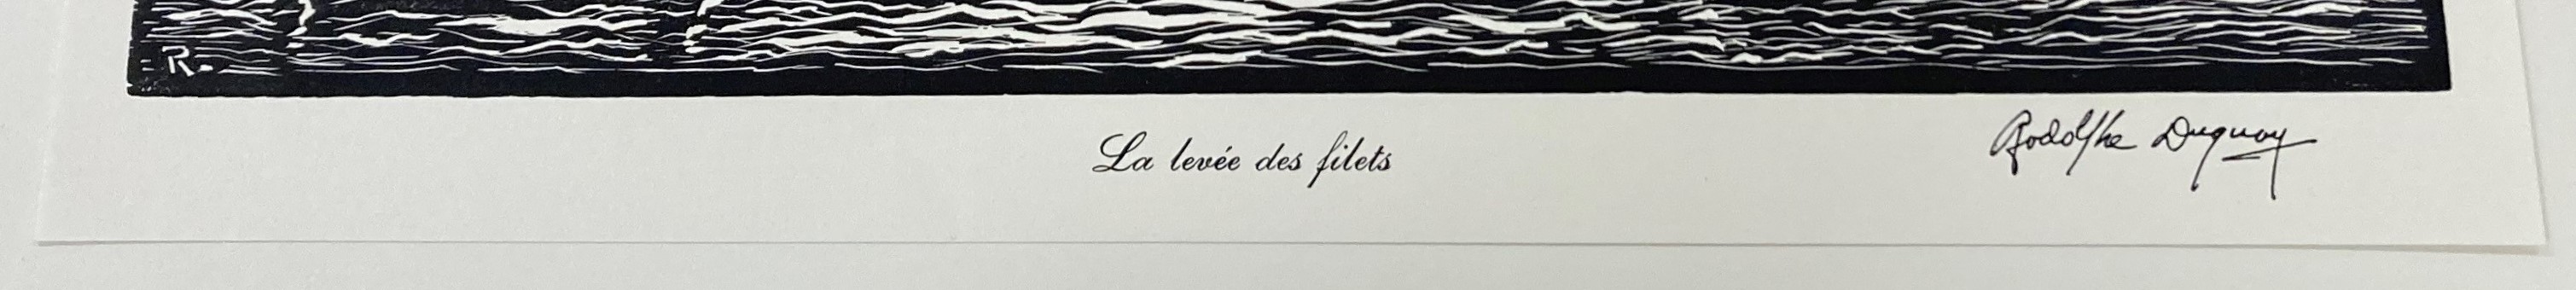 R.
La levée des filets
Rodolphe Duguay